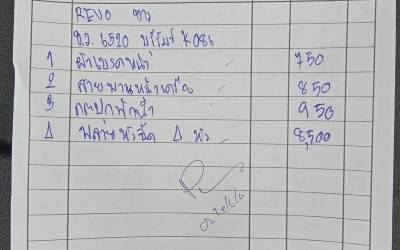 REVO ขาว
ข.ว. 6520 บุรีรัมย์ 7086
1 ผ้าเบรคหน้า 750
2 สายพานหน้าเครื่อง 850
3 กระปุกพักน้ำ 950
4 หัวฉีด 4 หัว 8,500